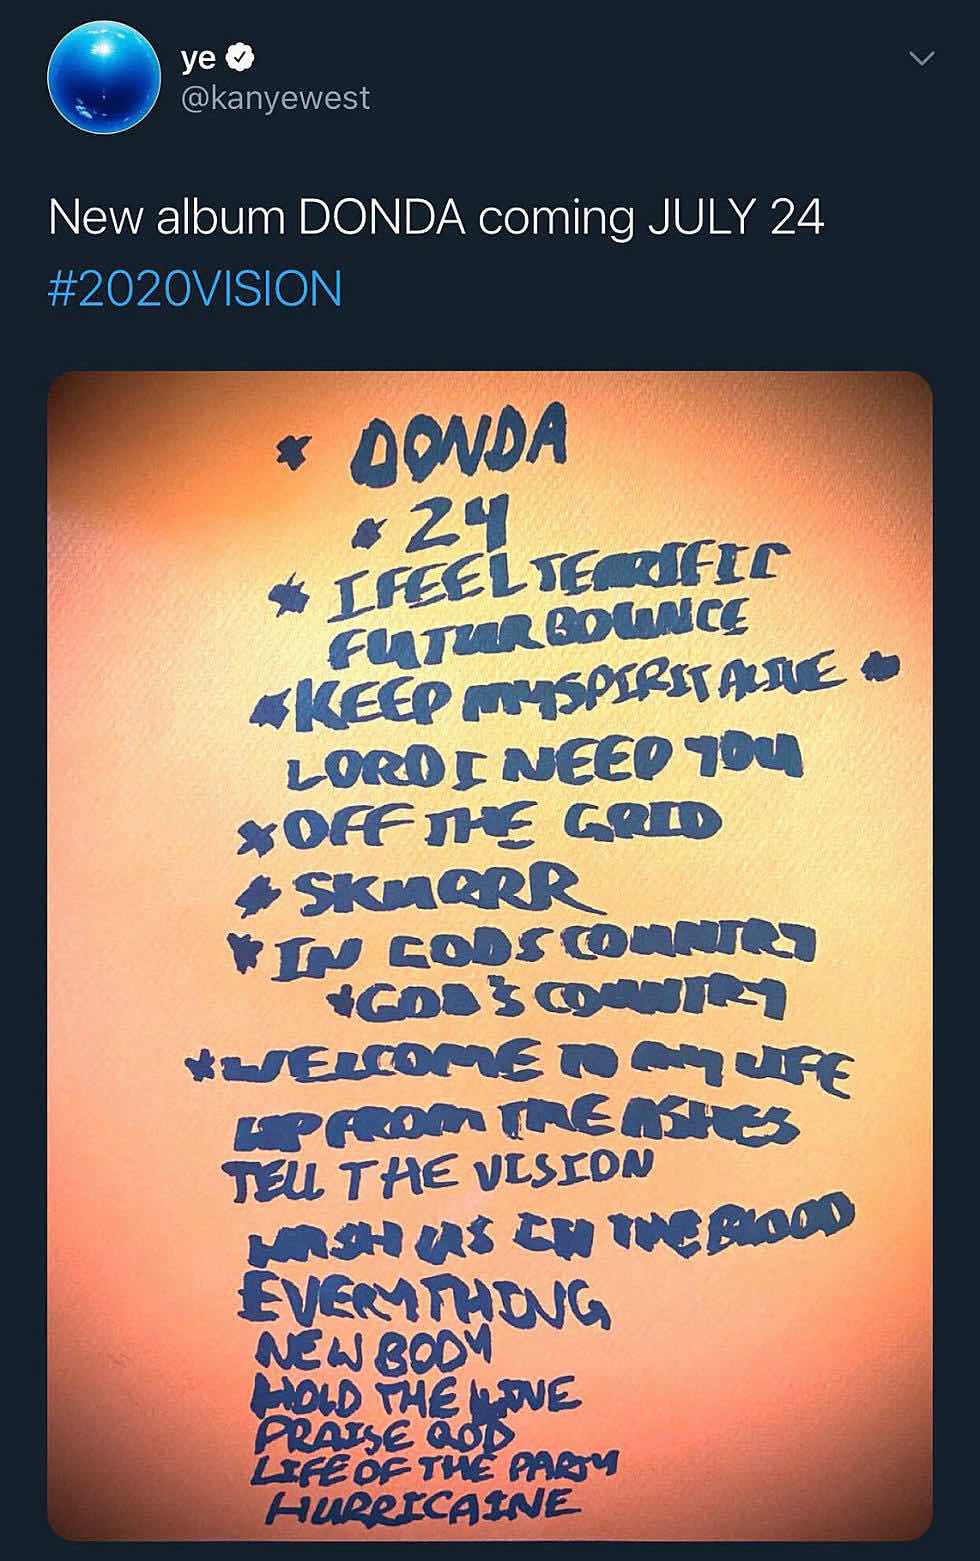 ye
@kanyewest
New album DONDA coming JULY 24
#2020VISION
* DONDA
* 24
* I FEEL TERRIFIC
FUTUR BOUNCE
* KEEP MY SPIRIT ALIVE *
LORD I NEED YOU
* OFF THE GRID
* SKURRR
* IN GODS COUNTRY
* GOD'S COUNTRY
* WELCOME TO MY LIFE
UP FROM THE ASHES
TELL THE VISION
WASH US IN THE BLOOD
EVERYTHING
NEW BODY
HOLD THE LINE
PRAISE GOD
LIFE OF THE PARTY
HURRICAINE